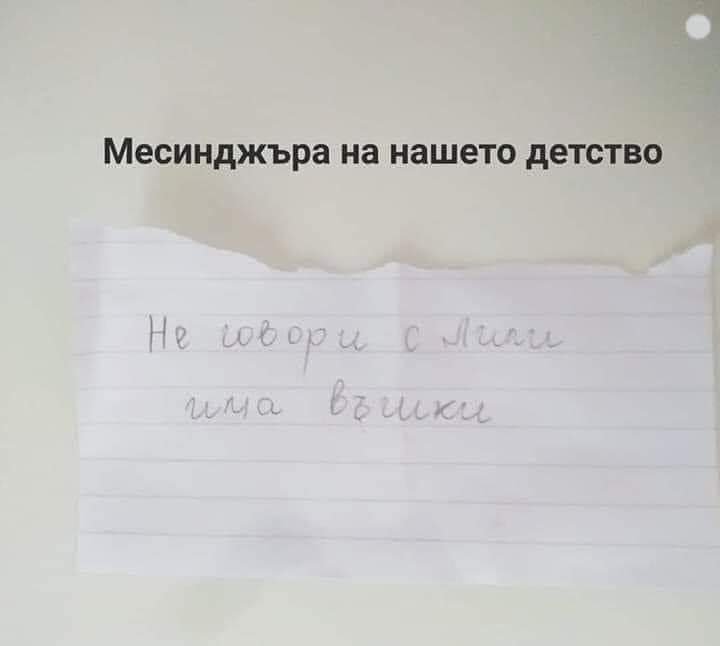 Месинджъра на нашето детство
Не говори с Лили
има въшки